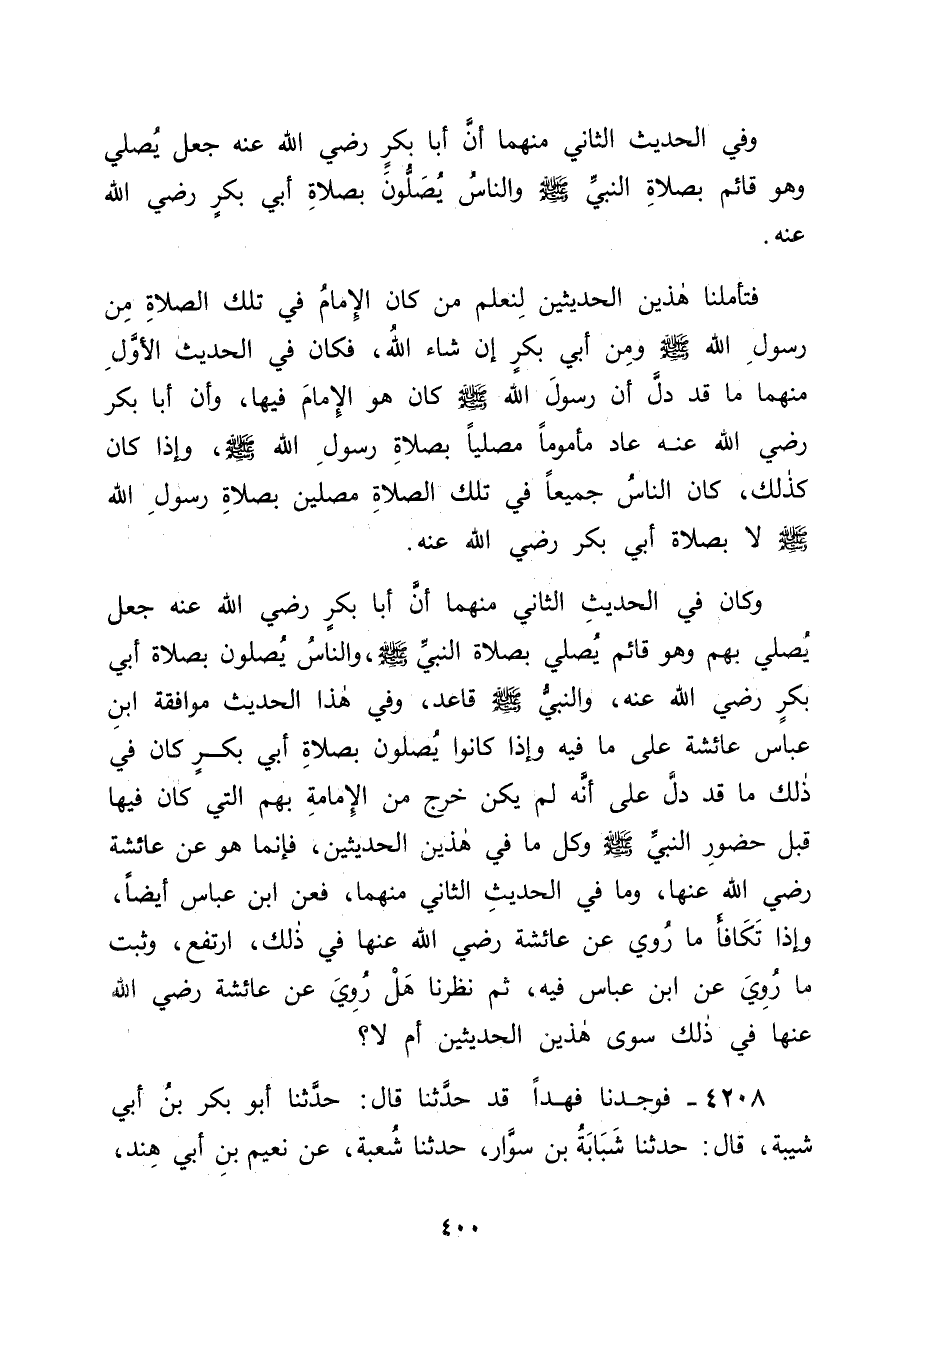 وفي الحديث الثاني منهما أنَّ أبا بكرٍ رضي الله عنه جعل يُصلي
وهو قائم بصلاةِ النبيِّ ﷺ والناسُ يُصَلُّونَ بصلاةِ أبي بكرٍ رضي الله
عنه.
فتأملنا هٰذين الحديثين لِنعلم من كان الإِمامُ في تلك الصلاةِ مِن
رسولِ الله ﷺ ومِن أبي بكرٍ إن شاء اللهُ، فكان في الحديث الأوَّلِ
منهما ما قد دلَّ أن رسولَ الله ﷺ كان هو الإِمامَ فيها، وأن أبا بكر
رضي الله عنه عاد مأموماً مصلياً بصلاةِ رسولِ الله ﷺ، وإذا كان
كذٰلك، كان الناسُ جميعاً في تلك الصلاةِ مصلين بصلاةِ رسولِ الله
ﷺ لا بصلاة أبي بكر رضي الله عنه.
وكان في الحديثِ الثاني منهما أنَّ أبا بكرٍ رضي الله عنه جعل
يُصلي بهم وهو قائم يُصلي بصلاة النبيِّ ﷺ،والناسُ يُصلون بصلاة أبي
بكرٍ رضي الله عنه، والنبيُّ ﷺ قاعد، وفي هٰذا الحديث موافقة ابنِ
عباس عائشة على ما فيه وإذا كانوا يُصلون بصلاةِ أبي بكـــرٍ كان في
ذٰلك ما قد دلَّ على أنَّه لم يكن خرج من الإِمامةِ بهم التي كان فيها
قبل حضورِ النبيِّ ﷺ وكل ما في هٰذين الحديثين، فإنما هو عن عائشة
رضي الله عنها، وما في الحديثِ الثاني منهما، فعن ابن عباس أيضاً،
وإذا تَكَافأَ ما رُوي عن عائشة رضي الله عنها في ذٰلك، ارتفع، وثبت
ما رُوِيَ عن ابن عباس فيه، ثم نظرنا هَلْ رُوِيَ عن عائشة رضي الله
عنها في ذٰلك سوى هٰذين الحديثين أم لا؟
٤٢٠٨ ـ فوجـدنا فهـداً قد حدَّثنا قال: حدَّثنا أبو بكر بنُ أبي
شيبة، قال: حدثنا شَبَابَةُ بن سوَّار، حدثنا شُعبة، عن نعيم بنِ أبي هِند،
٤٠٠